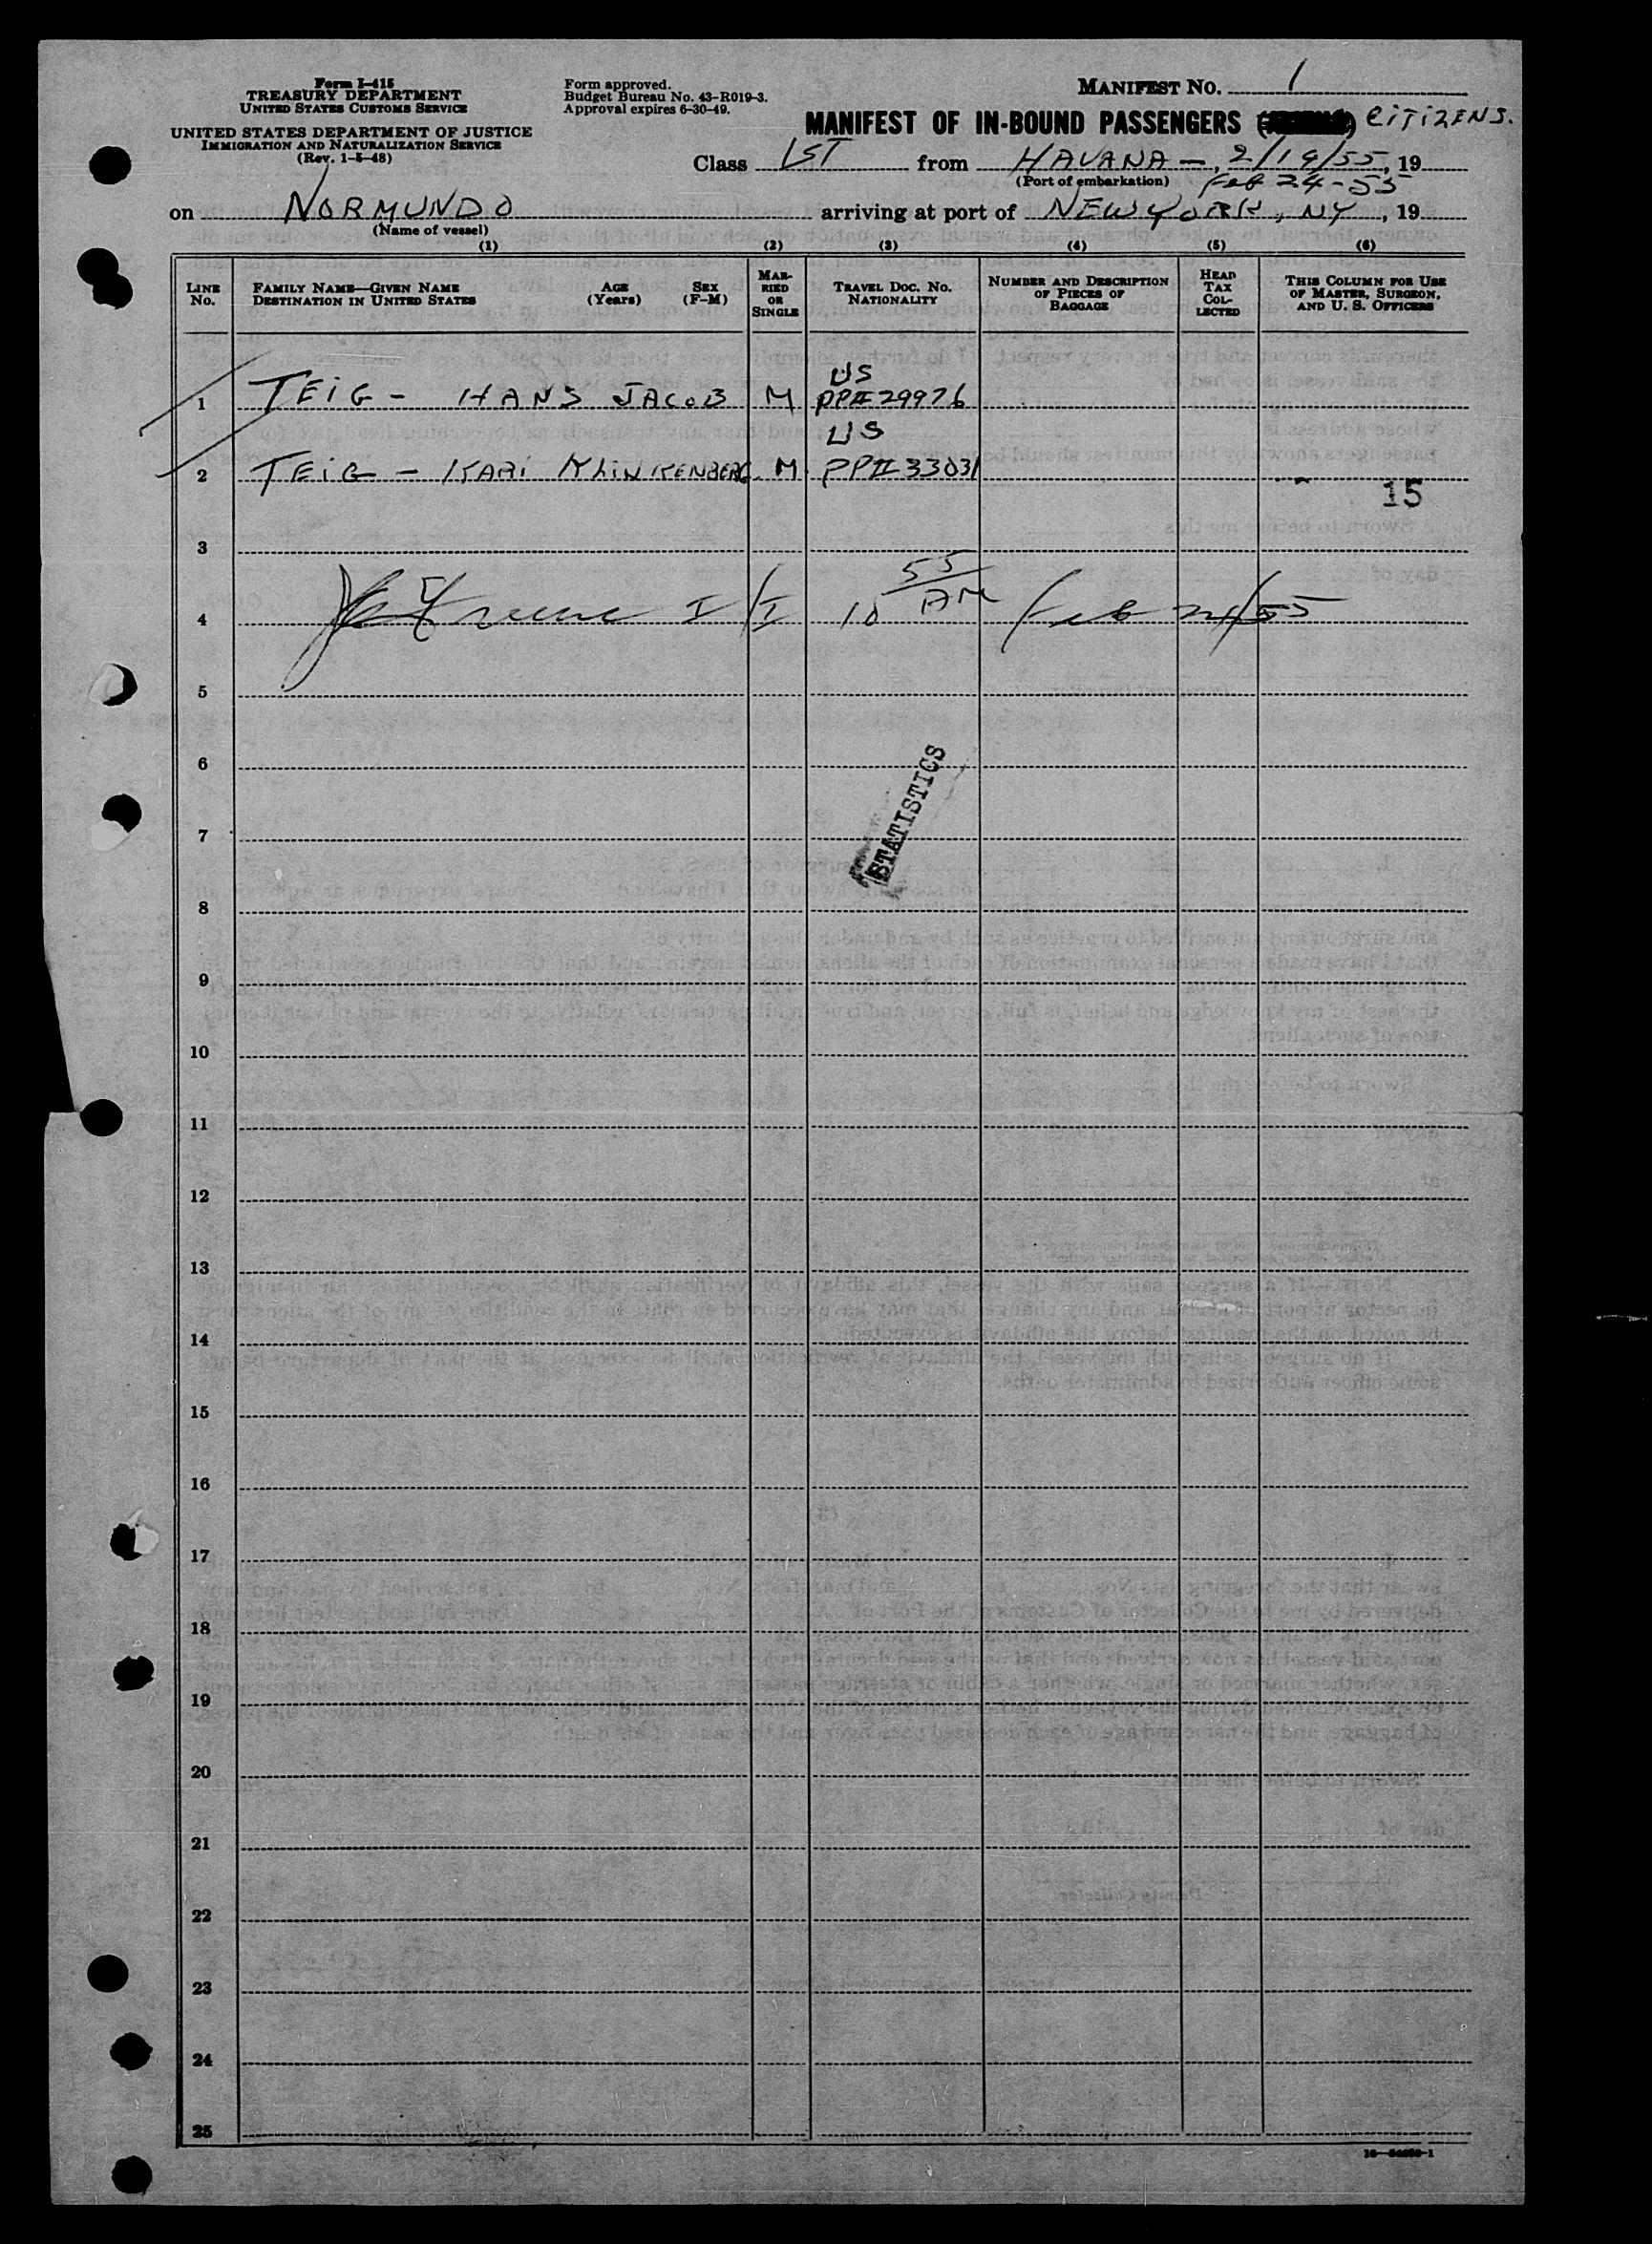 Form I-415
TREASURY DEPARTMENT
UNITED STATES CUSTOMS SERVICE
UNITED STATES DEPARTMENT OF JUSTICE
IMMIGRATION AND NATURALIZATION SERVICE
(Rev. 1-5-48)
Form approved.
Budget Bureau No. 43-R019-3.
Approval expires 6-30-49.
MANIFEST NO. 1
MANIFEST OF IN-BOUND PASSENGERS CITIZENS.
Class 1ST from HAVANA —, 2/19/55, 19
(Port of embarkation) Feb 24-55
on NORMUNDO arriving at port of NEW YORK, NY, 19
(Name of vessel)
(1) (2) (3) (4) (5) (6)
LINE NO.
FAMILY NAME—GIVEN NAME
DESTINATION IN UNITED STATES
AGE (Years)
SEX (F-M)
MARRIED OR SINGLE
TRAVEL DOC. NO.
NATIONALITY
NUMBER AND DESCRIPTION OF PIECES OF BAGGAGE
HEAD TAX COLLECTED
THIS COLUMN FOR USE OF MASTER, SURGEON, AND U. S. OFFICERS
US
1 TEIG - HANS JACOB M PP# 29976
US
2 TEIG - KARI KLINKENBERG M. PP# 33031
15
3
4 I/I 10 55/AM Feb 24/55
5
6
STATISTICS
7
8
9
10
11
12
13
14
15
16
17
18
19
20
21
22
23
24
25